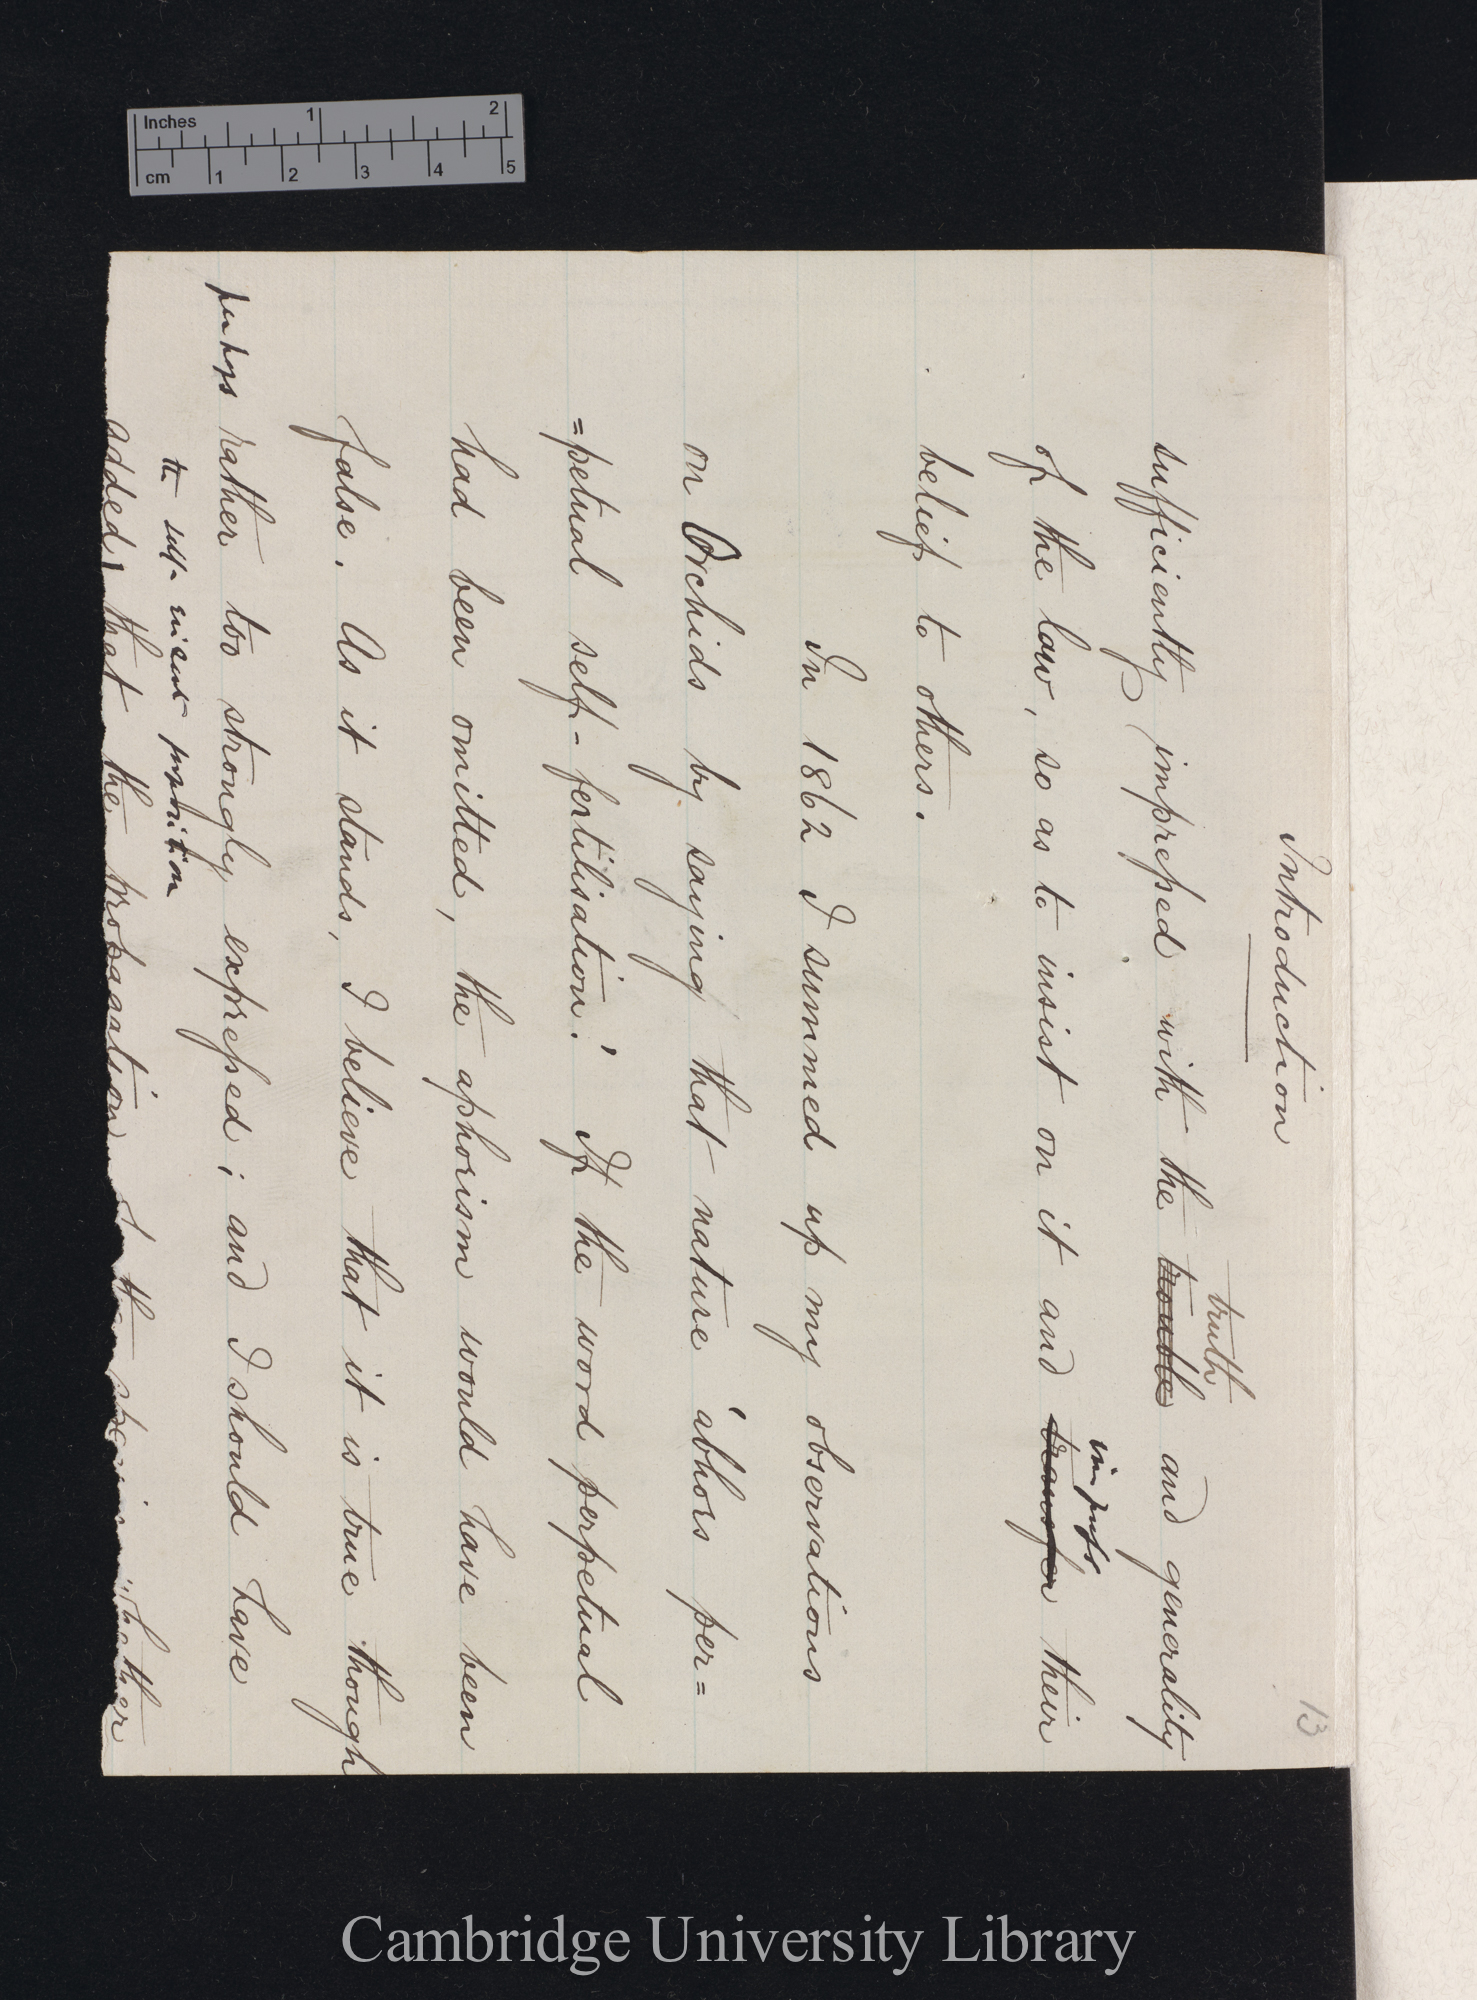 Inches 1 2
cm 1 2 3 4 5
13
Introduction
truth
sufficiently impressed with the trouble and generality
impress
of the law, so as to insist on it and transfer their
belief to others.
In 1862 I summed up my observations
on Orchids by saying that nature 'abhors per=
=petual self-fertilisation.' If the word perpetual
had been omitted, the aphorism would have been
false. As it stands, I believe that it is true though
perhaps rather too strongly expressed; and I should have
the self-evident proposition
added, that the propagation of the species whether
Cambridge University Library